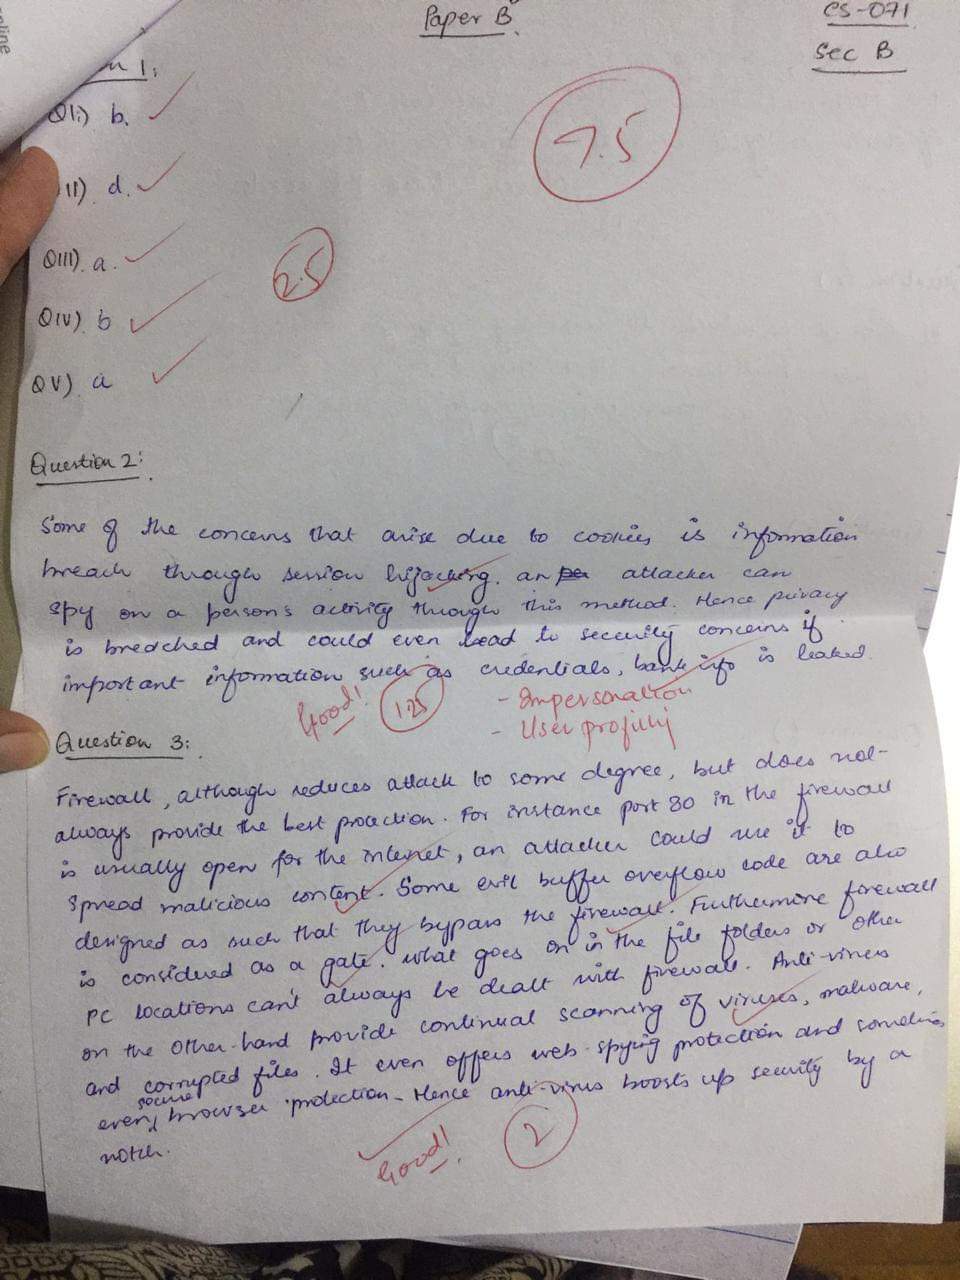 Paper B
CS-071
Sec B
7.5
Q1i) b.
II) d.
QIII). a.
QIV). b
QV) a
2.5
Question 2:
Some of the concerns that arise due to cookies is information
breach through session hijacking. an attacker can
spy on a person's activity through this method. Hence privacy
is breached and could even lead to security concerns if
important information such as credentials, bank info is leaked.
Good! 1.25
- Impersonation
- User profiling
Question 3:
Firewall, although reduces attack to some degree, but does not
always provide the best protection. For instance port 80 in the firewall
is usually open for the internet, an attacker could use it to
spread malicious content. Some evil buffer overflow code are also
designed as such that they bypass the firewall. Furthermore firewall
is considered as a gate. What goes on in the file folders or other
PC locations can't always be dealt with firewall. Anti-virus
on the other-hand provide continual scanning of viruses, malware,
and corrupted files. It even offers web-spying protection and sometimes
even secure browser protection. Hence anti-virus boosts up security by a
notch.
Good! 2